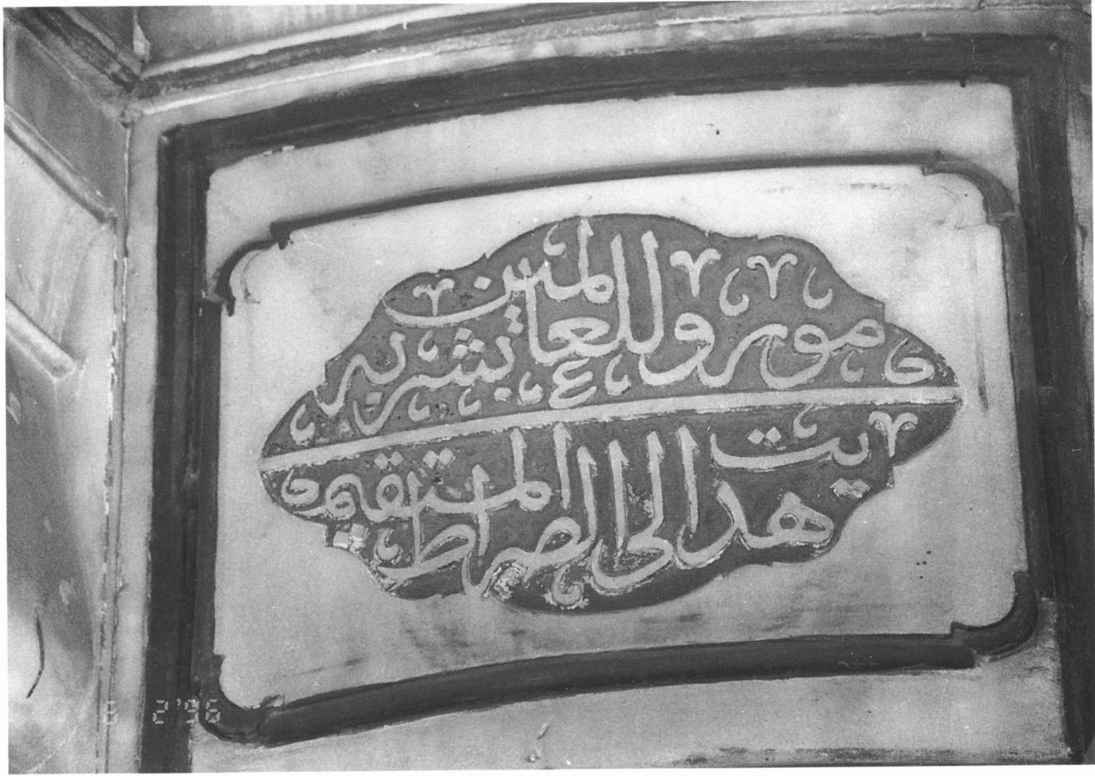 وللعالمين بشر به
هدايت الى الصراط المستقيم
2 '96